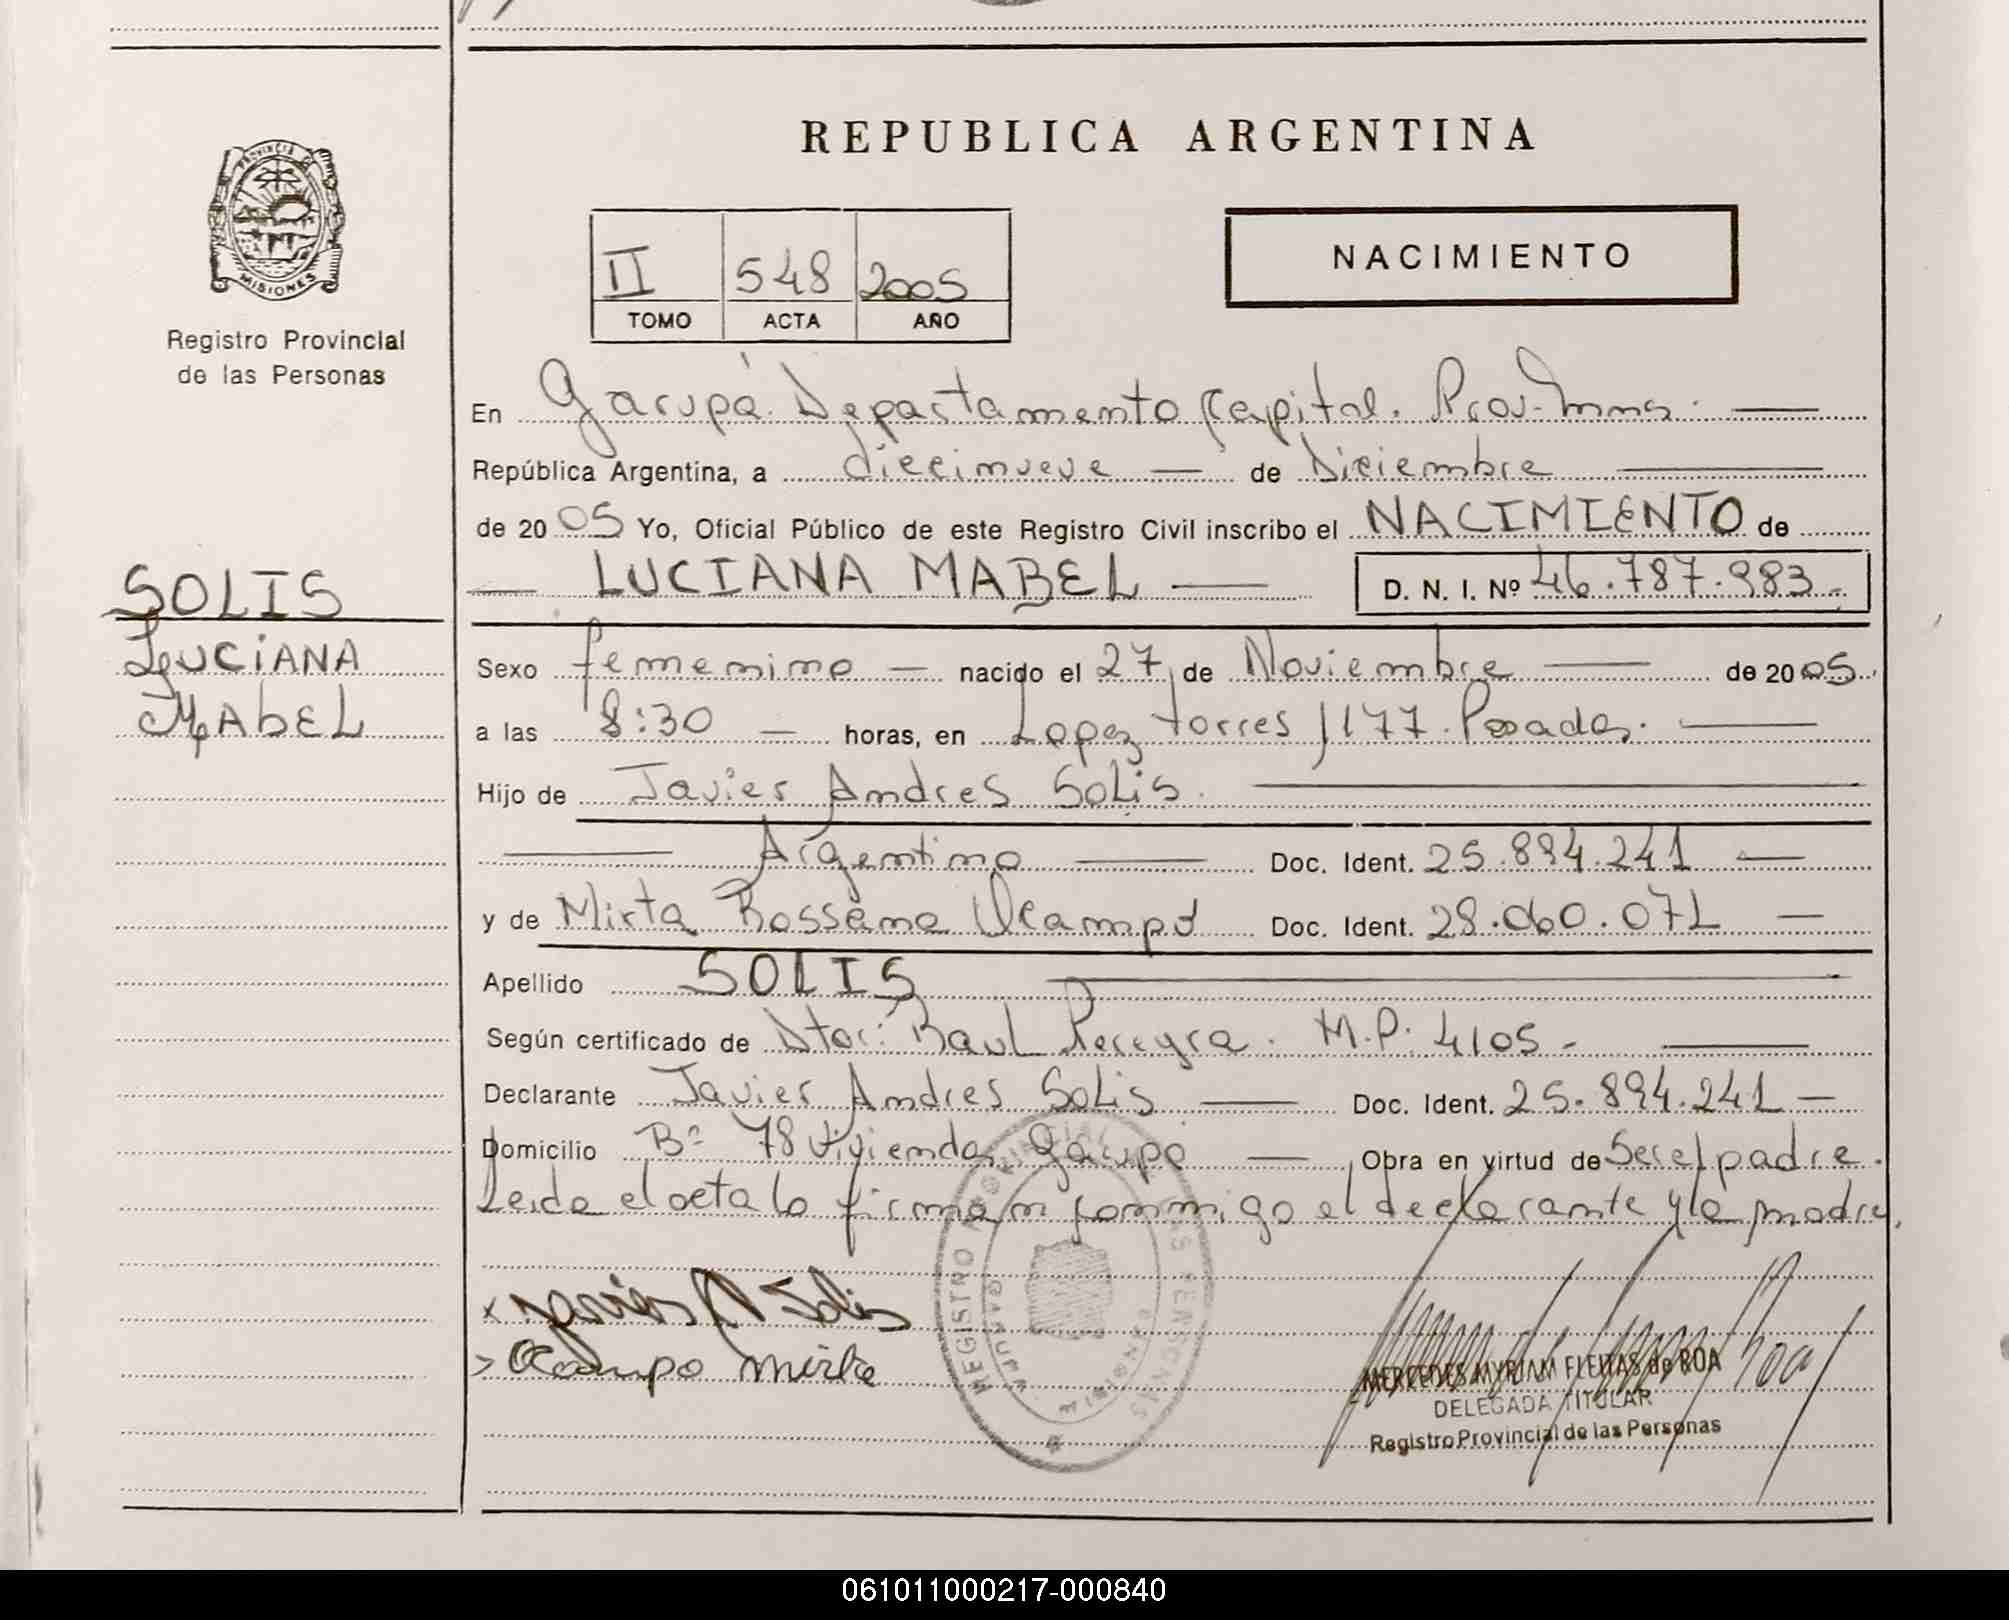 REPUBLICA ARGENTINA
PROVINCIA DE
MISIONES
Registro Provincial
de las Personas
II 548 2005
TOMO ACTA AÑO
NACIMIENTO
En Garupá Departamento Capital. Prov. Mnes.
República Argentina, a diecinueve de Diciembre
de 2005 Yo, Oficial Público de este Registro Civil inscribo el NACIMIENTO de
LUCIANA MABEL D. N. I. Nº 46.787.983.-
SOLIS
LUCIANA
MABEL
Sexo femenino nacido el 27 de Noviembre de 2005
a las 8:30 horas, en Lopez torres 1177. Posadas.
Hijo de Javier Andres Solis.
Argentino Doc. Ident. 25.894.241
y de Mirta Rossana Ocampo Doc. Ident. 28.060.071
Apellido SOLIS
Según certificado de Dtor: Raul Pereyra. M.P. 4105.-
Declarante Javier Andres Solis Doc. Ident. 25.894.241
Domicilio Bº 78 Viviendas Garupa Obra en virtud de Ser el padre.
Leida el acta la firman conmigo el declarante y la madre.
x Javier A Solis
Ocampo Mirta
REGISTRO PROVINCIAL DE LAS PERSONAS
GARUPA
MISIONES
MERCEDES MYRIAM FLEITAS de ROA
DELEGADA TITULAR
Registro Provincial de las Personas
061011000217-000840